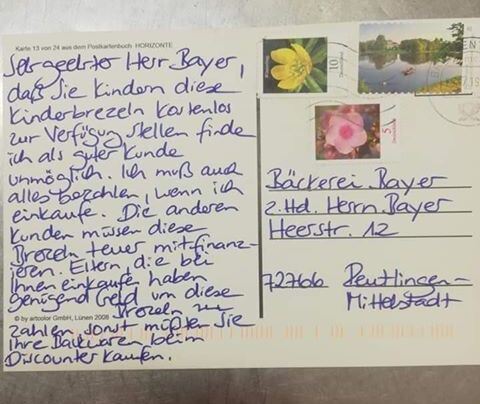 Karte 13 von 24 aus dem Postkartenbuch HORIZONTE
Sehr geehrter Herr Bayer,
daß Sie Kindern diese
Kinderbrezeln kostenlos
zur Verfügung stellen finde
ich als guter Kunde
unmöglich. Ich muß auch
alles bezahlen, wenn ich
einkaufe. Die anderen
Kunden müssen diese
Brezeln teuer mitfinanz-
ieren. Eltern, die bei
Ihnen einkaufen haben
genügend Geld um diese
Brezeln zu
© by artcolor GmbH, Lünen 2008
zahlen sonst müßten Sie
ihre Backwaren beim
Discounter kaufen.
10
Deutschland
5
Deutschland
Bäckerei Bayer
z. Hd. Herrn Bayer
Heerstr. 12
72766 Reutlingen-
Mittelstadt